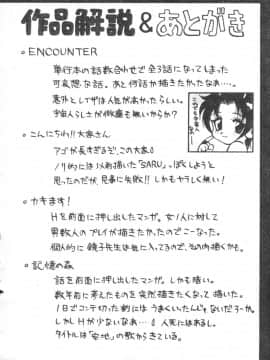 作品解説&あとがき
○ENCOUNTER
単行本の話数合わせで全3話になってしまった
可哀想な話。あと何話か描きたかったなあ…。
意外としてけは人気が高かったらしい。
宇宙人らしさが微塵も無いからか?
○こんにちわ!!大家さん
アゴが長すぎるぞ、この大家。
ノリ的には以前描いた「SARU」っぽくしようと
思ったのだが、見事に失敗!! しかもヤラしく無い!
○カキます!
Hを前面に押し出したマンガ。女1人に対して
男数人のプレイが描きたかったのでこーなった。
個人的に鏡子先生は気に入ってるので、その内描くかも。
○記憶の森
話を前面に押し出したマンガ。しかも暗い。
数年前に考えたものを突然描きたくなって描いた。
1日でコンテ切った割にはうまくいったんじゃないだろーか。
しかしHが少ないなあ…。人死にはあるし。
タイトルは「安地」の歌からきている。